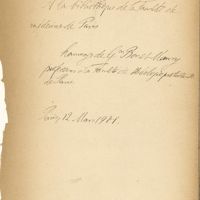 A la bibliothèque de la Faculté de
médecine de Paris
hommage de G. Bonet-Maury
professeur à la Faculté de théologie protestante
de Paris
Paris 12 Mars 1881.